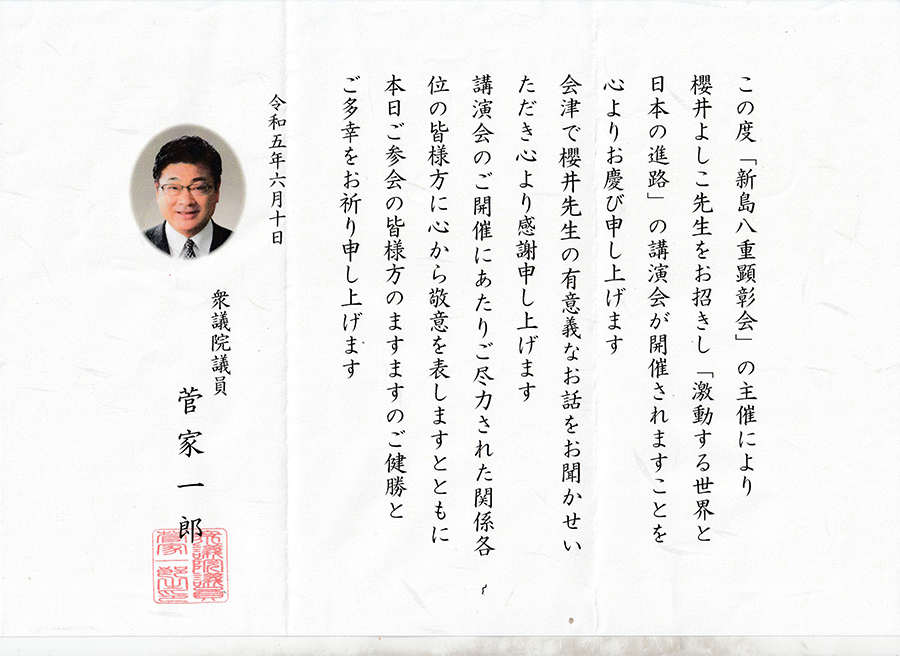 この度「新島八重顕彰会」の主催により
櫻井よしこ先生をお招きし「激動する世界と
日本の進路」の講演会が開催されますことを
心よりお慶び申し上げます
会津で櫻井先生の有意義なお話をお聞かせい
ただき心より感謝申し上げます
講演会のご開催にあたりご尽力された関係各
位の皆様方に心から敬意を表しますとともに
本日ご参会の皆様方のますますのご健勝と
ご多幸をお祈り申し上げます
令和五年六月十日
衆議院議員
菅家一郎